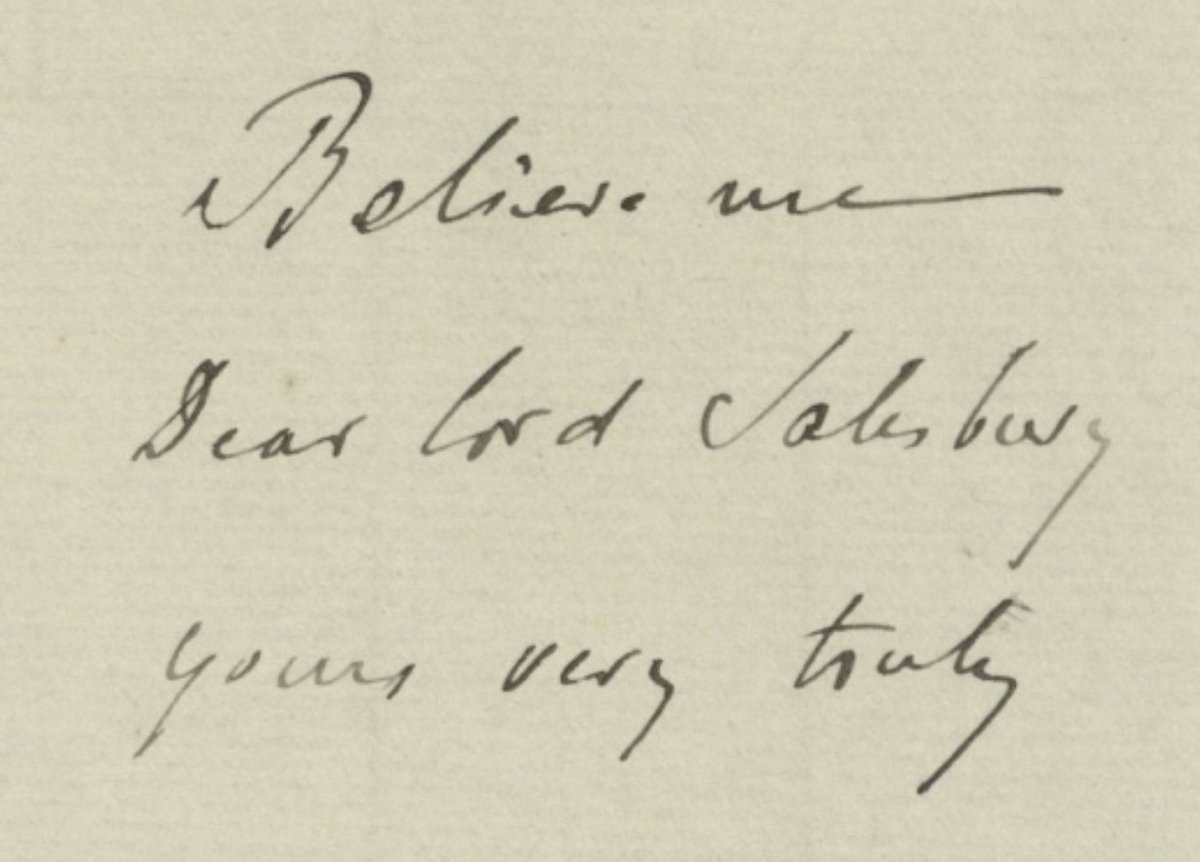 Believe me
Dear Lord Salisbury
yours very truly